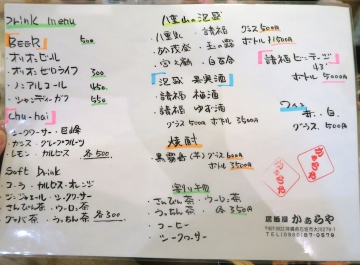 Drink menu
BEER 500
オリオンビール
オリオンゼロライフ 300
・ノンアルコール 450
・シャンディーガフ 550
Chu-hai
シークワーサー・巨峰
カシス・グレープフルーツ
レモン・カルピス 各500
Soft Drink
コーラ・カルピス・オレンジ
ジンジャエール・シークワーサー
さんぴん茶・ウーロン茶
グァバ茶・うっちん茶 各300
八重山の泡盛
・八重泉・請福 グラス500円
・於茂登・玉の露 ボトル
・宮之鶴・白百合
泡盛 果実酒
・請福 梅酒
・請福 ゆず酒
グラス500円 ボトル3500円
焼酎
・黒霧島(芋) グラス600円
ボトル
割り物
・さんぴん茶・ウーロン茶
・うっちん茶 各350円
・コーヒー
・シークワーサー
請福ビンテージ
43°
ボトル5000円
ワイン
赤・白
グラス500円
居酒屋 かぁらや